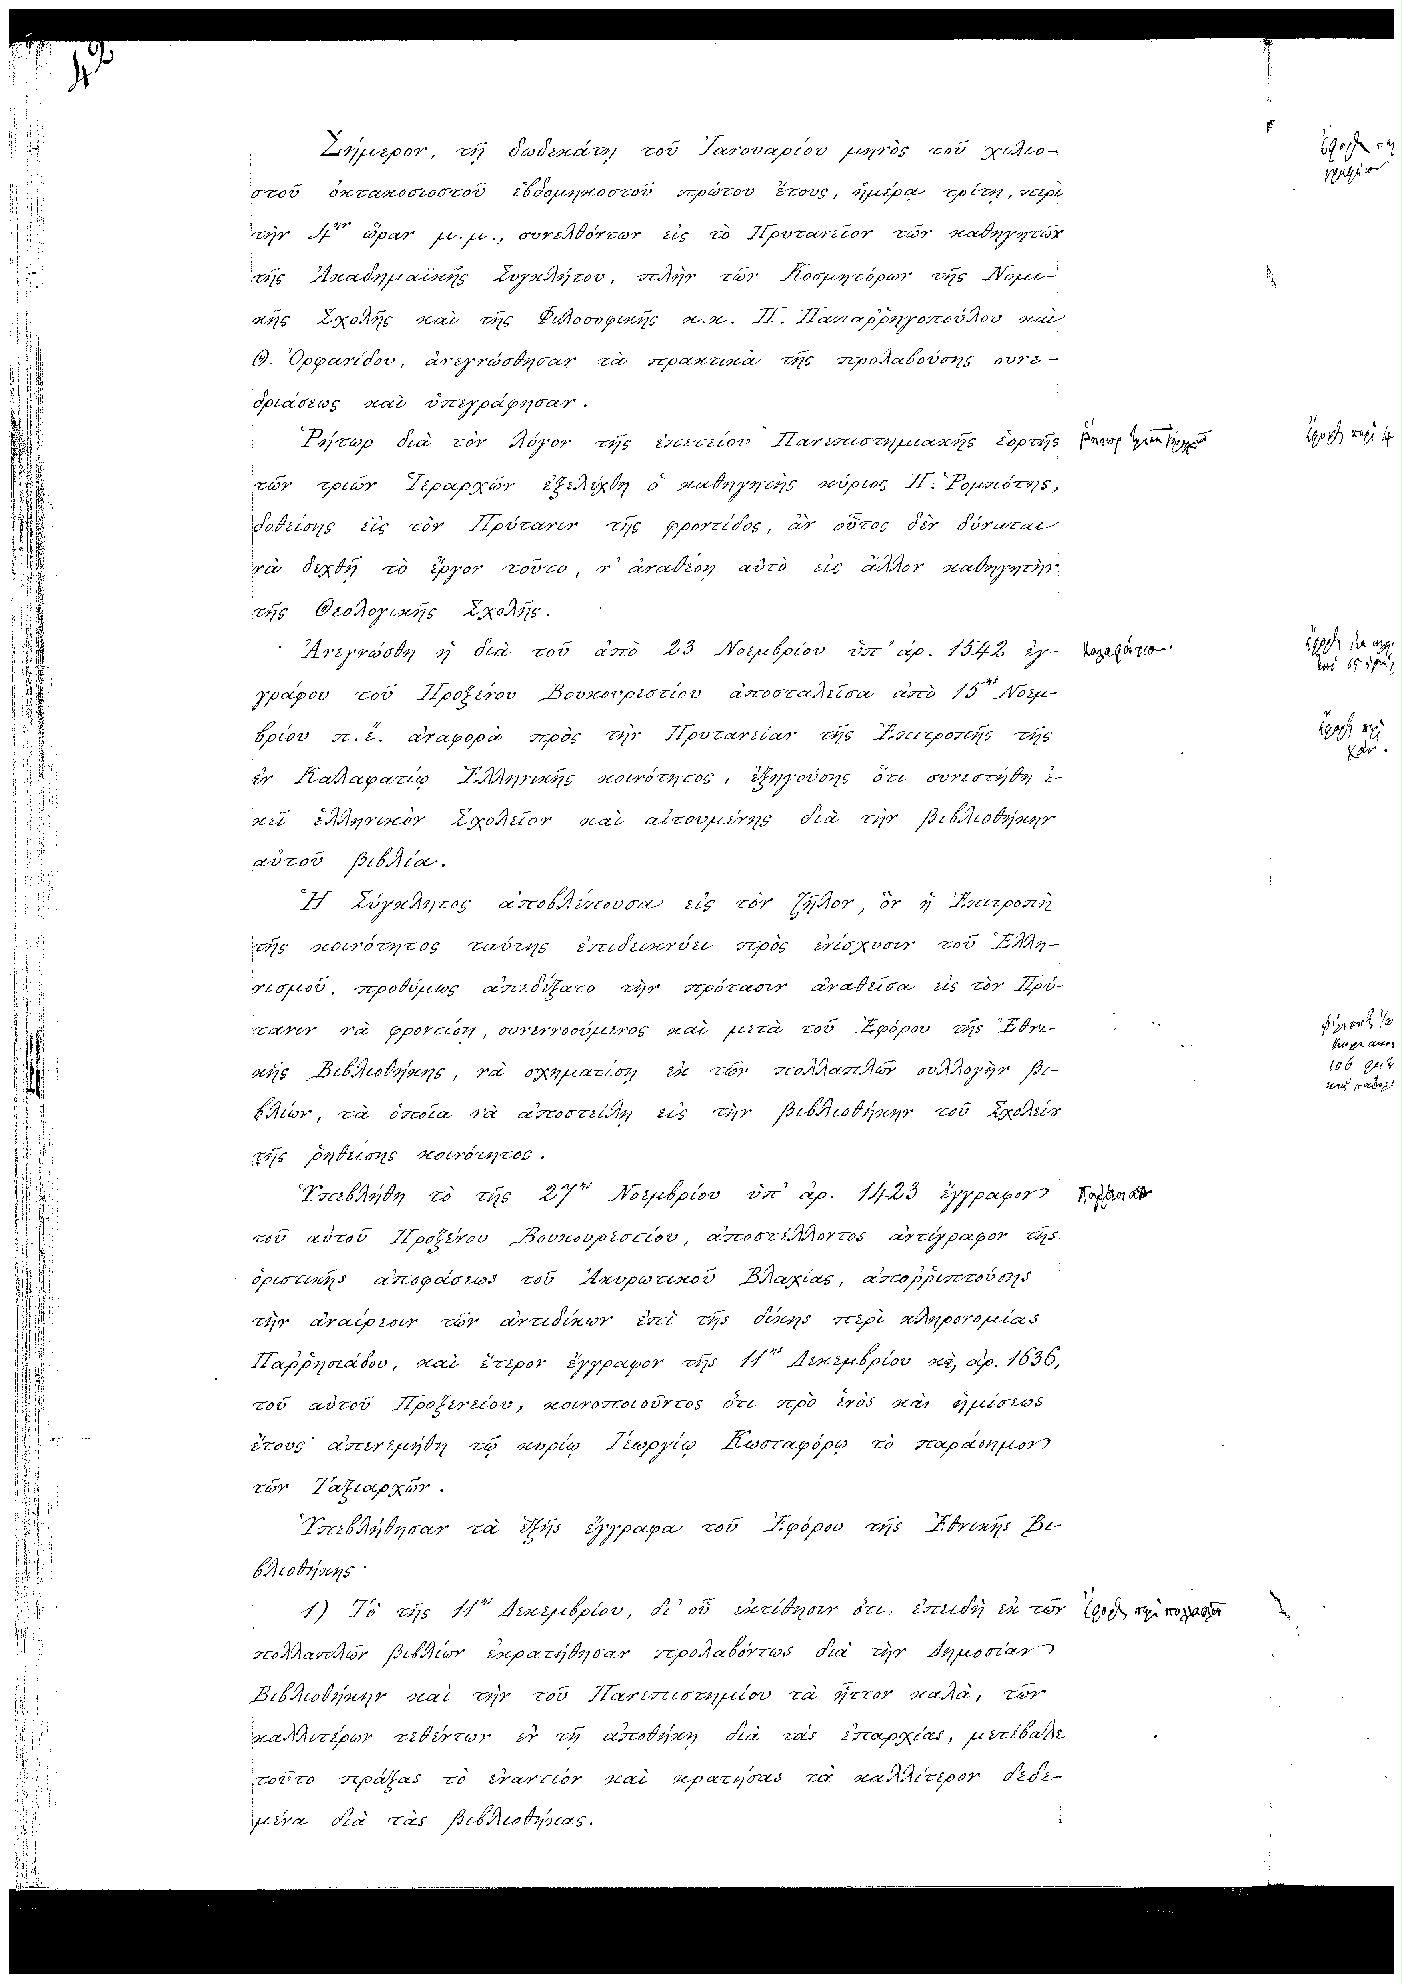 42
Σήμερον, τῇ δωδεκάτῃ τοῦ Ἰανουαρίου μηνὸς τοῦ χιλιο-
στοῦ ὀκτακοσιοστοῦ ἑβδομηκοστοῦ πρώτου ἔτους, ἡμέρᾳ τρίτῃ, περὶ
τὴν 4ην ὥραν μ.μ., συνελθόντων εἰς τὸ Πρυτανεῖον τῶν καθηγητῶν
τῆς Ἀκαδημαϊκῆς Συγκλήτου, πλὴν τῶν Κοσμητόρων τῆς Νομι-
κῆς Σχολῆς καὶ τῆς Φιλοσοφικῆς κ.κ. Π. Παπαῤῥηγοπούλου καὶ
Θ. Ὀρφανίδου, ἀνεγνώσθησαν τὰ πρακτικὰ τῆς προλαβούσης συνε-
δριάσεως καὶ ὑπεγράφησαν.
Ῥήτωρ διὰ τὸν λόγον τῆς ἐπετείου Πανεπιστημιακῆς ἑορτῆς
τῶν τριῶν Ἱεραρχῶν ἐξελέχθη ὁ καθηγητὴς κύριος Π. Ῥομπότης,
δοθείσης εἰς τὸν Πρύτανιν τῆς φροντίδος, ἂν οὗτος δὲν δύναται
νὰ δεχθῇ τὸ ἔργον τοῦτο, ν' ἀναθέσῃ αὐτὸ εἰς ἄλλον καθηγητὴν
τῆς Θεολογικῆς Σχολῆς.
Ἀνεγνώσθη ἡ διὰ τοῦ ἀπὸ 23 Νοεμβρίου ὑπ' ἀρ. 1542 ἐγ-
γράφου τοῦ Προξένου Βουκουρεστίου ἀποσταλεῖσα ἀπὸ 15ης Νοεμ-
βρίου π.ἔ. ἀναφορὰ πρὸς τὴν Πρυτανείαν τῆς Ἐπιτροπῆς τῆς
ἐν Καλαφατίῳ Ἑλληνικῆς κοινότητος, ἐξηγούσης ὅτι συνεστήθη ἐ-
κεῖ ἑλληνικὸν Σχολεῖον καὶ αἰτουμένης διὰ τὴν βιβλιοθήκην
αὐτοῦ βιβλία.
Ἡ Σύγκλητος ἀποβλέπουσα εἰς τὸν ζῆλον, ὃν ἡ Ἐπιτροπὴ
τῆς κοινότητος ταύτης ἐπιδεικνύει πρὸς ἐνίσχυσιν τοῦ Ἑλλη-
νισμοῦ, προθύμως ἀπεδέξατο τὴν πρότασιν ἀναθεῖσα εἰς τὸν Πρύ-
τανιν νὰ φροντίσῃ, συνεννοούμενος καὶ μετὰ τοῦ Ἐφόρου τῆς Ἐθνι-
κῆς Βιβλιοθήκης, νὰ σχηματίσῃ ἐκ τῶν πολλαπλῶν συλλογὴν βι-
βλίων, τὰ ὁποῖα νὰ ἀποστείλῃ εἰς τὴν βιβλιοθήκην τοῦ Σχολείου
τῆς ῥηθείσης κοινότητος.
Ὑπεβλήθη τὸ τῆς 27ης Νοεμβρίου ὑπ' ἀρ. 1423 ἔγγραφον
τοῦ αὐτοῦ Προξένου Βουκουρεστίου, ἀποστέλλοντος ἀντίγραφον τῆς
ὁριστικῆς ἀποφάσεως τοῦ Ἀκυρωτικοῦ Βλαχίας, ἀποῤῥιπτούσης
τὴν ἀναίρεσιν τῶν ἀντιδίκων ἐπὶ τῆς δίκης περὶ κληρονομίας
Παῤῥησιάδου, καὶ ἕτερον ἔγγραφον τῆς 11ης Δεκεμβρίου ἀρ. 1636,
τοῦ αὐτοῦ Προξενείου, κοινοποιοῦντος ὅτι πρὸ ἑνὸς καὶ ἡμίσεως
ἔτους ἀπενεμήθη τῷ κυρίῳ Γεωργίῳ Κωσταφόρῳ τὸ παράσημον
τῶν Ταξιαρχῶν.
Ὑπεβλήθησαν τὰ ἑξῆς ἔγγραφα τοῦ Ἐφόρου τῆς Ἐθνικῆς Βι-
βλιοθήκης·
1) Τὸ τῆς 11ης Δεκεμβρίου, δι' οὗ ἐκτίθησιν ὅτι, ἐπειδὴ ἐκ τῶν
πολλαπλῶν βιβλίων ἐκρατήθησαν προλαβόντως διὰ τὴν Δημοσίαν
Βιβλιοθήκην καὶ τὴν τοῦ Πανεπιστημίου τὰ ἧττον καλὰ, τῶν
καλλιτέρων τεθέντων ἐν τῇ ἀποθήκῃ διὰ τὰς ἐπαρχίας, μετέβαλε
τοῦτο πράξας τὸ ἐναντίον καὶ κρατήσας τὰ καλλίτερον δεδε-
μένα διὰ τὰς βιβλιοθήκας.